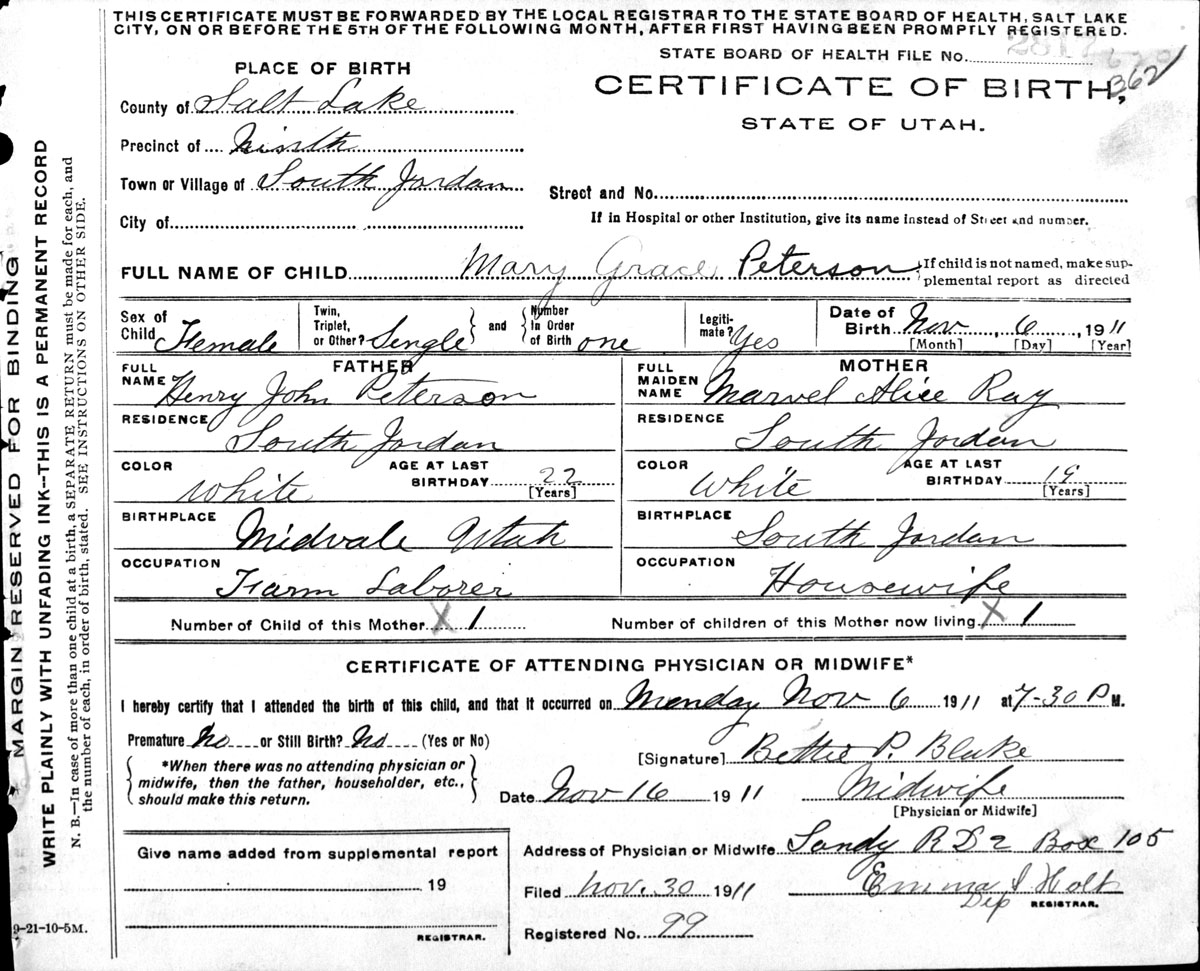 THIS CERTIFICATE MUST BE FORWARDED BY THE LOCAL REGISTRAR TO THE STATE BOARD OF HEALTH, SALT LAKE
CITY, ON OR BEFORE THE 5TH OF THE FOLLOWING MONTH, AFTER FIRST HAVING BEEN PROMPTLY REGISTERED.
STATE BOARD OF HEALTH FILE NO.
362
PLACE OF BIRTH
CERTIFICATE OF BIRTH,
STATE OF UTAH.
County of Salt Lake
Precinct of
Town or Village of South Jordan
Street and No.
City of
If in Hospital or other Institution, give its name instead of Street and number.
FULL NAME OF CHILD Mary Grace Peterson
If child is not named, make sup-
plemental report as directed
Sex of Child Female
Twin, Triplet, or Other? Single
and
Number In Order of Birth one
Legiti-mate? Yes
Date of Birth Nov 6, 1911
[Month] [Day] [Year]
FATHER
FULL NAME Henry John Peterson
RESIDENCE
South Jordan
COLOR White
AGE AT LAST BIRTHDAY 22
[Years]
BIRTHPLACE
Midvale Utah
OCCUPATION
Farm Laborer
MOTHER
FULL MAIDEN NAME Marvel Alice Ray
RESIDENCE
South Jordan
COLOR White
AGE AT LAST BIRTHDAY 19
[Years]
BIRTHPLACE
South Jordan
OCCUPATION
Housewife
Number of Child of this Mother X 1
Number of children of this Mother now living X 1
CERTIFICATE OF ATTENDING PHYSICIAN OR MIDWIFE*
I hereby certify that I attended the birth of this child, and that it occurred on Monday Nov 6 1911 at 7-30 P M.
Premature No or Still Birth? No (Yes or No)
*When there was no attending physician or
midwife, then the father, householder, etc.,
should make this return.
[Signature] Bettie P. Blake
Date Nov 16 1911 Midwife
[Physician or Midwife]
Give name added from supplemental report
19
REGISTRAR.
Address of Physician or Midwife Sandy R D 2 Box 105
Filed Nov. 30 1911 Emma J Holt
Dep REGISTRAR.
Registered No. 99
MARGIN RESERVED FOR BINDING
WRITE PLAINLY WITH UNFADING INK--THIS IS A PERMANENT RECORD
N. B.—In case of more than one child at a birth, a SEPARATE RETURN must be made for each, and
the number of each, in order of birth, stated. SEE INSTRUCTIONS ON OTHER SIDE.
9-21-10-5M.